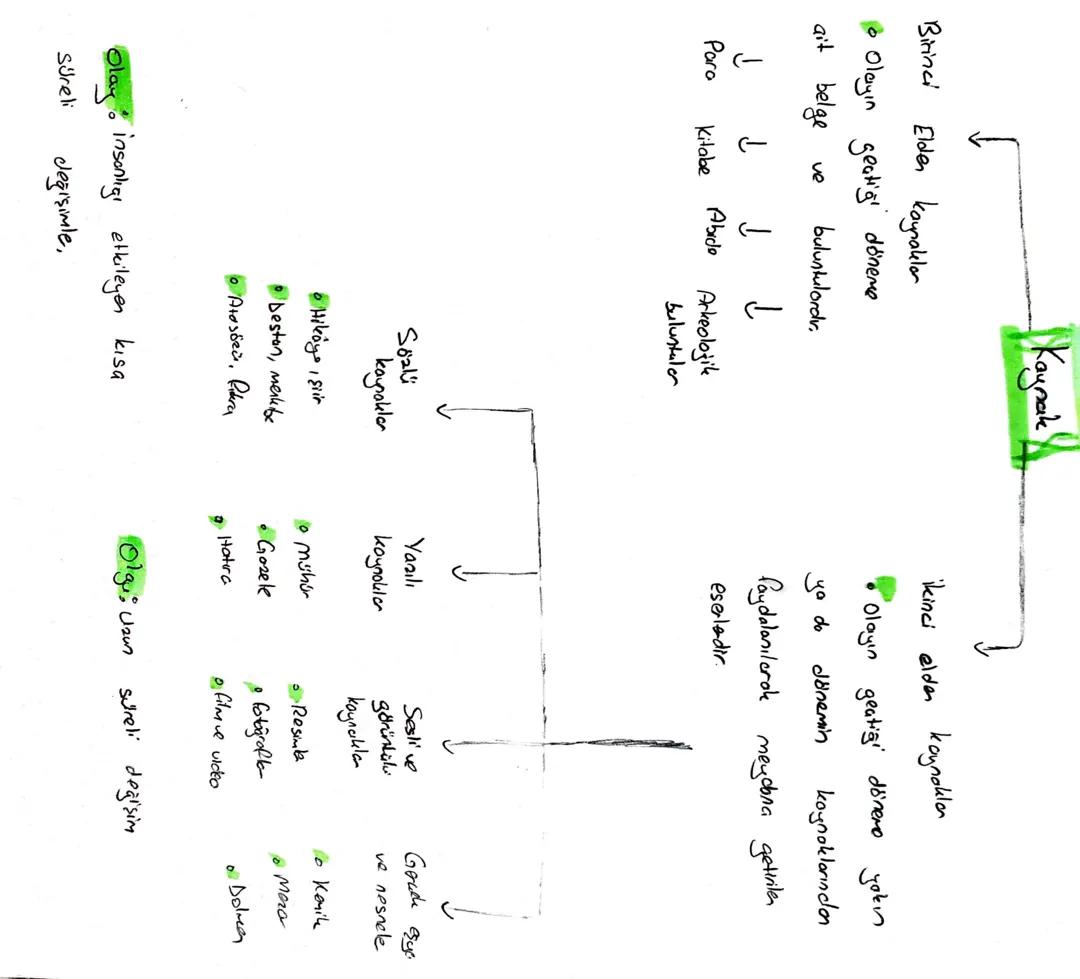 Kaynak
Birinci Elden kaynaklar
Olayın geçtiği döneme
ait belge ve buluntulardır.
Para Kitabe Abide Arkeolojik
buluntular
ikinci elden kaynaklar
Olayın geçtiği döneme yakın
ya da dönemin kaynaklarından
faydalanılarak meydana getirilen
eserlerdir.
Sözlü
kaynaklar
Hikâye, şiir
Destan, menkıbe
Atasözü, fıkra
Yazılı
kaynaklar
mühür
Gazete
Hatıra
Sesli ve
görüntülü
kaynaklar
Resimle
fotoğrafla
film ve video
Gerçek eşya
ve nesnele
Kemik
Mezar
Dolmen
Olay: insanlığı etkileyen kısa
süreli değişimle,
Olgu: uzun süreli değişim